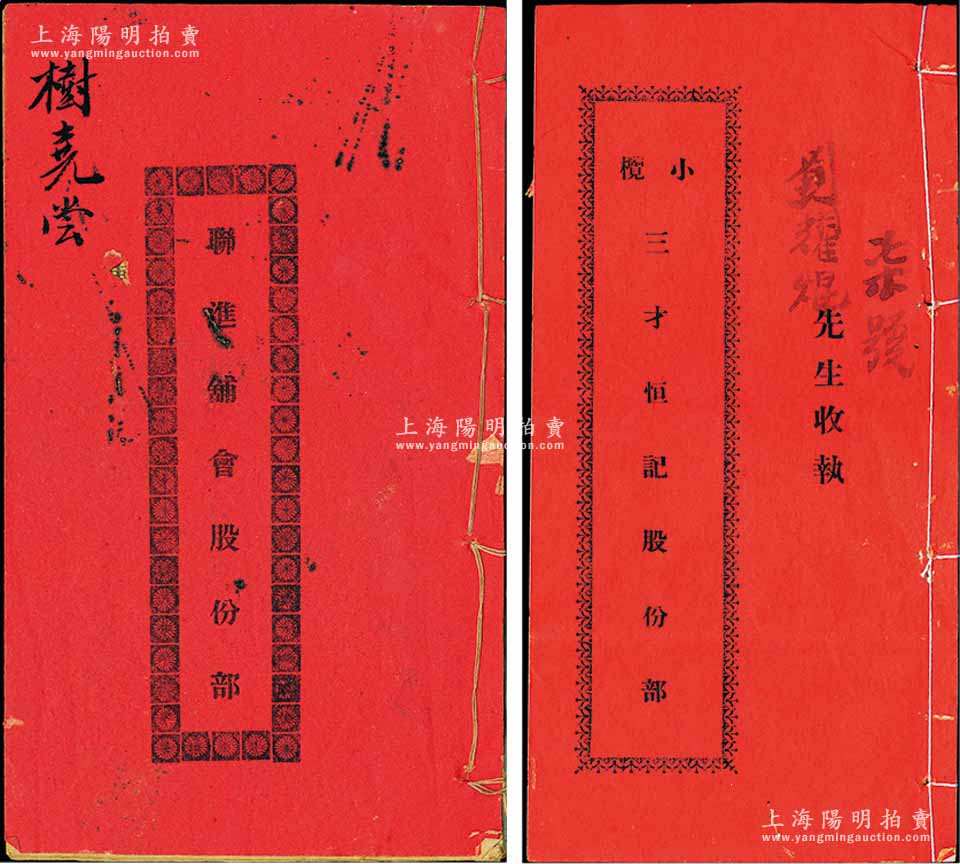 上海陽明拍賣
www.yangmingauction.com
樹堯堂
聯進舖會股份部
上海陽明拍賣
www.yangmingauction.com
小欖
三才恒記股份部
先生收執
號
上海陽明拍賣
www.yangmingauction.com